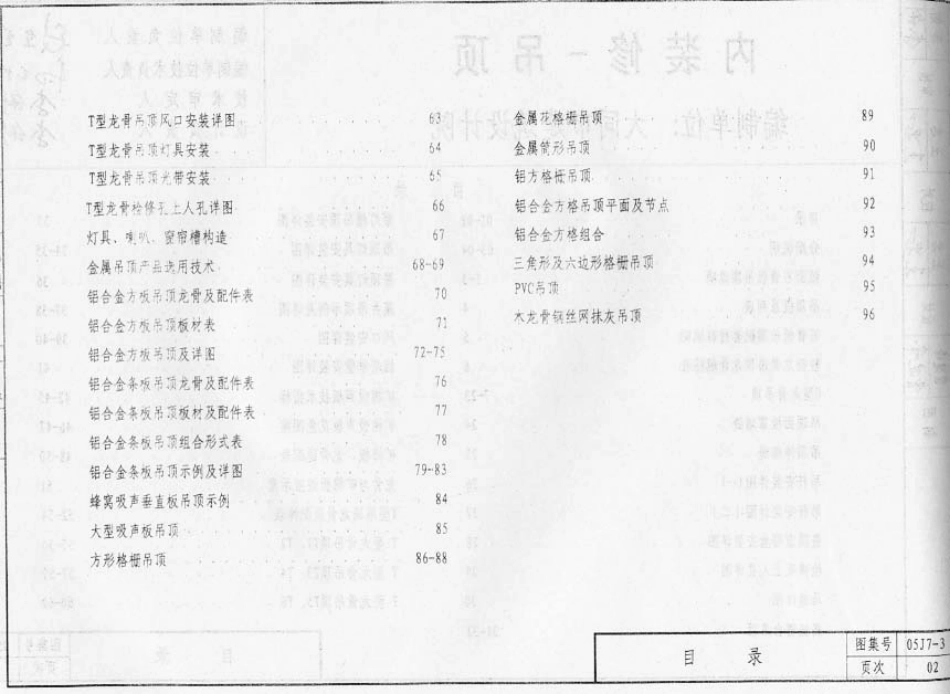 T型龙骨吊顶风口安装详图 63
T型龙骨吊顶灯具安装 64
T型龙骨吊顶光带安装 65
T型龙骨检修孔上人孔详图 66
灯具、喇叭、窗帘槽构造 67
金属吊顶产品选用技术 68-69
铝合金方板吊顶龙骨及配件表 70
铝合金方板吊顶板材表 71
铝合金方板吊顶及详图 72-75
铝合金条板吊顶龙骨及配件表 76
铝合金条板吊顶板材及配件表 77
铝合金条板吊顶组合形式表 78
铝合金条板吊顶示例及详图 79-83
蜂窝吸声垂直板吊顶示例 84
大型吸声板吊顶 85
方形格栅吊顶 86-88
金属花格栅吊顶 89
金属筒形吊顶 90
铝方格栅吊顶 91
铝合金方格吊顶平面及节点 92
铝合金方格组合 93
三角形及六边形格栅吊顶 94
PVC吊顶 95
木龙骨钢丝网抹灰吊顶 96
目录
图集号 05J7-3
页次 02